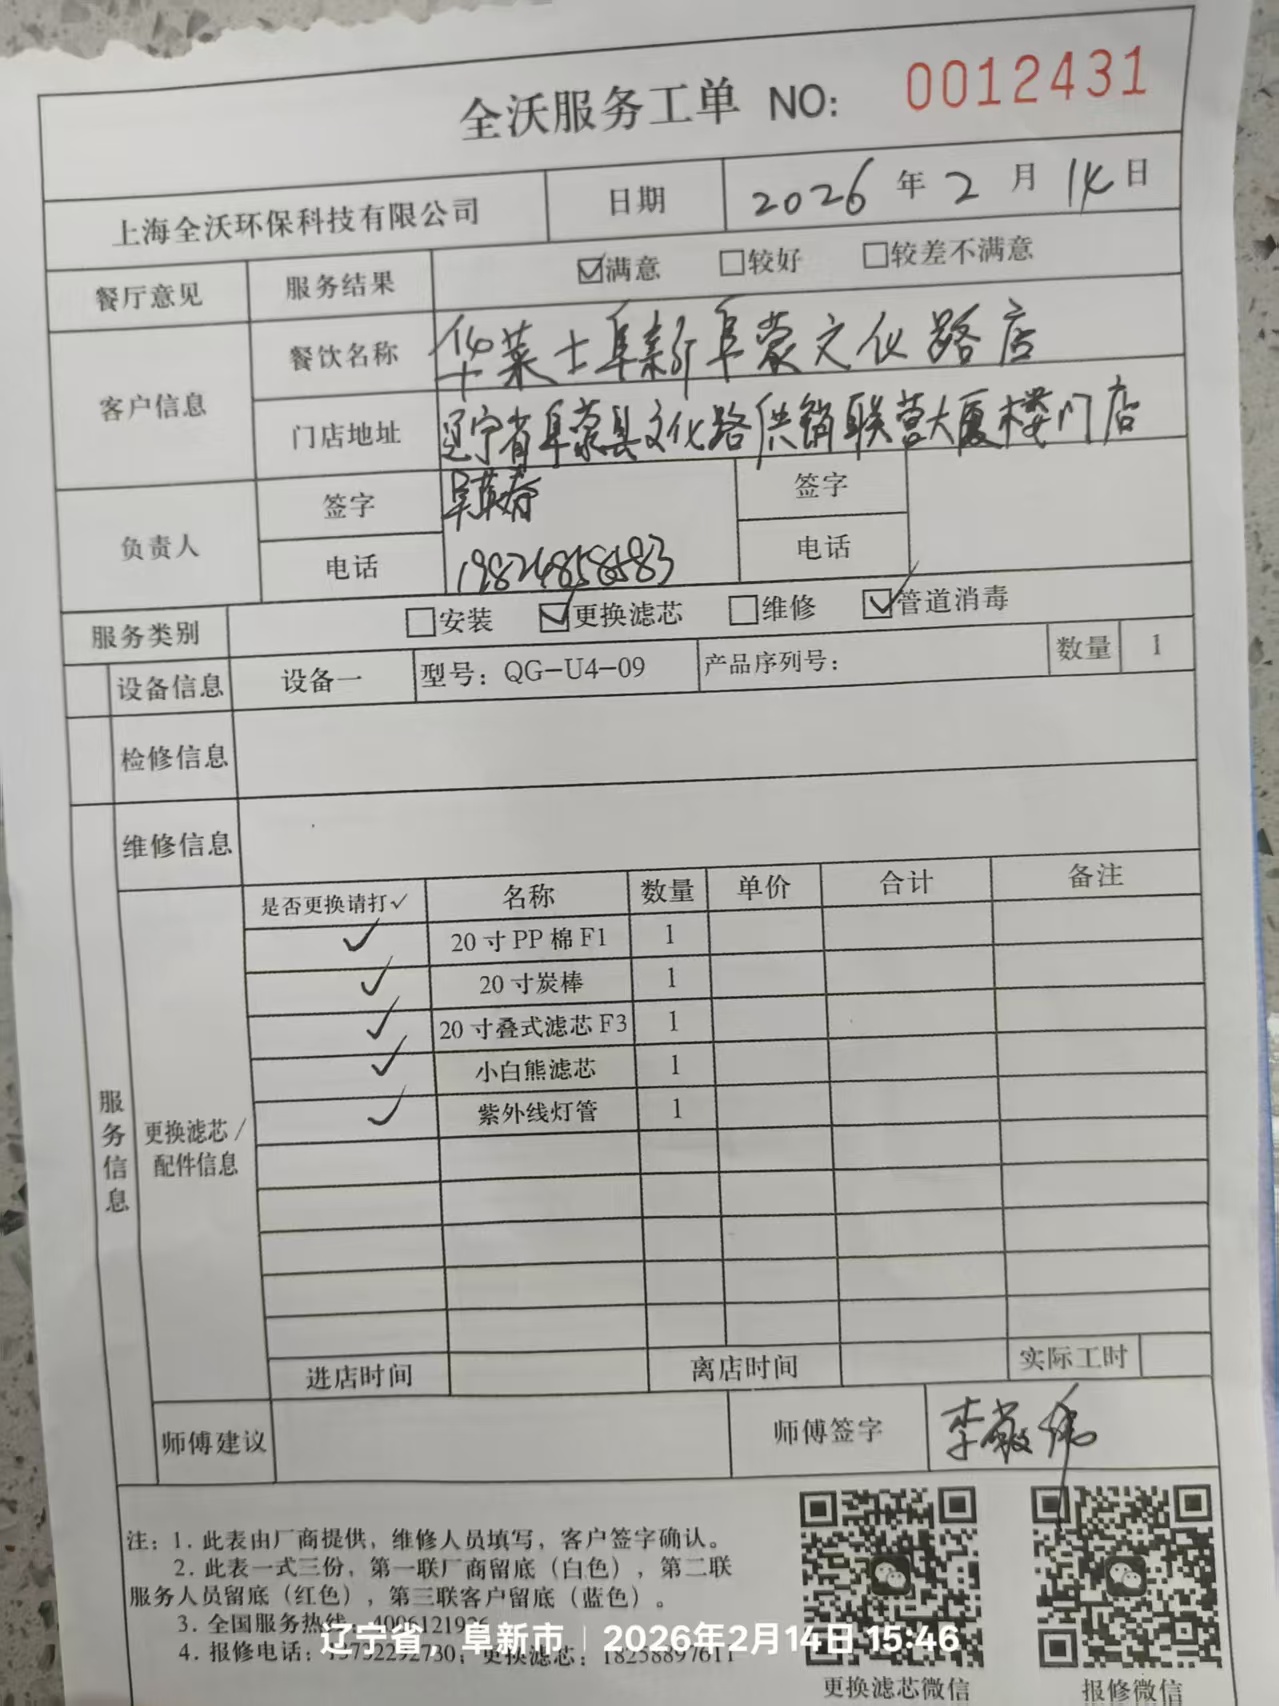 全沃服务工单 NO: 0012431
上海全沃环保科技有限公司 日期 2026年2月14日
餐厅意见 服务结果 ☑满意 □较好 □较差不满意
客户信息 餐饮名称 华莱士阜新阜蒙文化路店
门店地址 辽宁省阜蒙县文化路供销联营大厦楼门店
负责人 签字 签字
电话 电话
服务类别 □安装 ☑更换滤芯 □维修 ☑管道消毒
设备信息 设备一 型号：QG-U4-09 产品序列号： 数量 1
检修信息
维修信息
服务信息 更换滤芯/配件信息
是否更换请打✓ 名称 数量 单价 合计 备注
✓ 20寸PP棉F1 1
✓ 20寸炭棒 1
✓ 20寸叠式滤芯F3 1
✓ 小白熊滤芯 1
✓ 紫外线灯管 1
进店时间 离店时间 实际工时
师傅建议 师傅签字 李敬伟
注：1. 此表由厂商提供，维修人员填写，客户签字确认。
2. 此表一式三份，第一联厂商留底（白色），第二联
服务人员留底（红色），第三联客户留底（蓝色）。
3. 全国服务热线
4. 报修电话： 更换滤芯：18258897611
更换滤芯微信 报修微信
辽宁省 阜新市 | 2026年2月14日 15:46